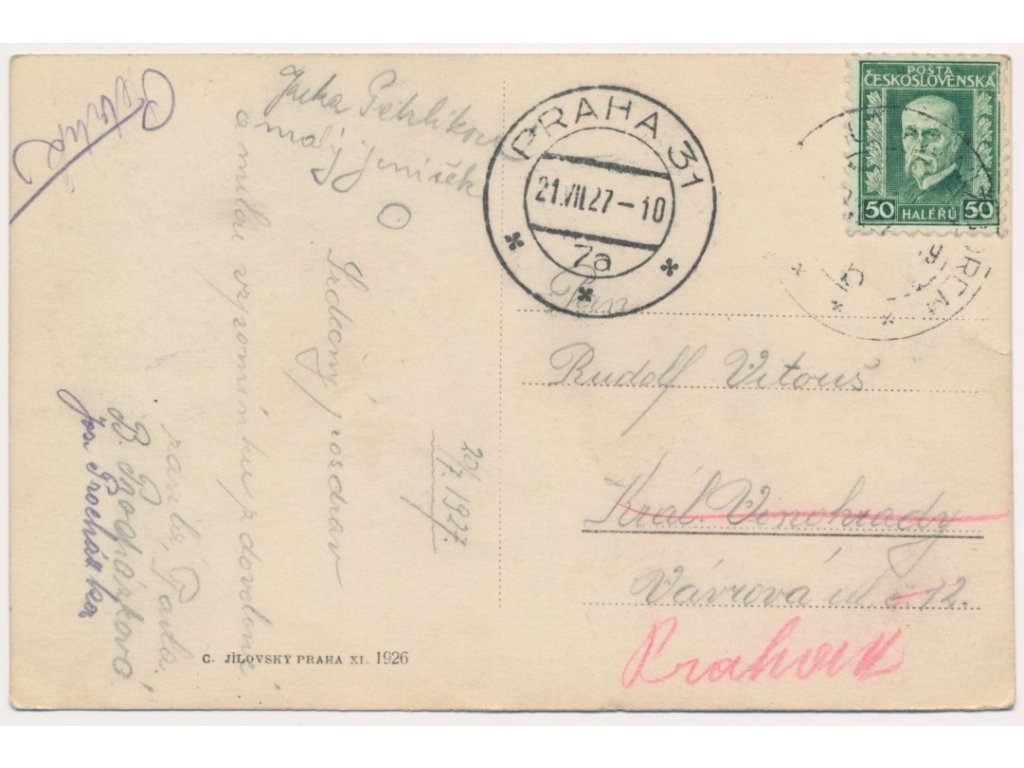 Jarka Pehlíková
a malý jeníček
Srdečný pozdrav
a milou vzpomínku z dovolené
zasílá
B. Procházková
Jos. Procházka
20/7. 1927.
C. JÍLOVSKY PRAHA XI. 1926
POŠTA
ČESKOSLOVENSKÁ
50 HALÉŘŮ 50
PRAHA 31
21.VII.27-10
7a
Pan
Rudolf Vitouš
Král. Vinohrady
Vávrová ul. č. 12.
Praha XII